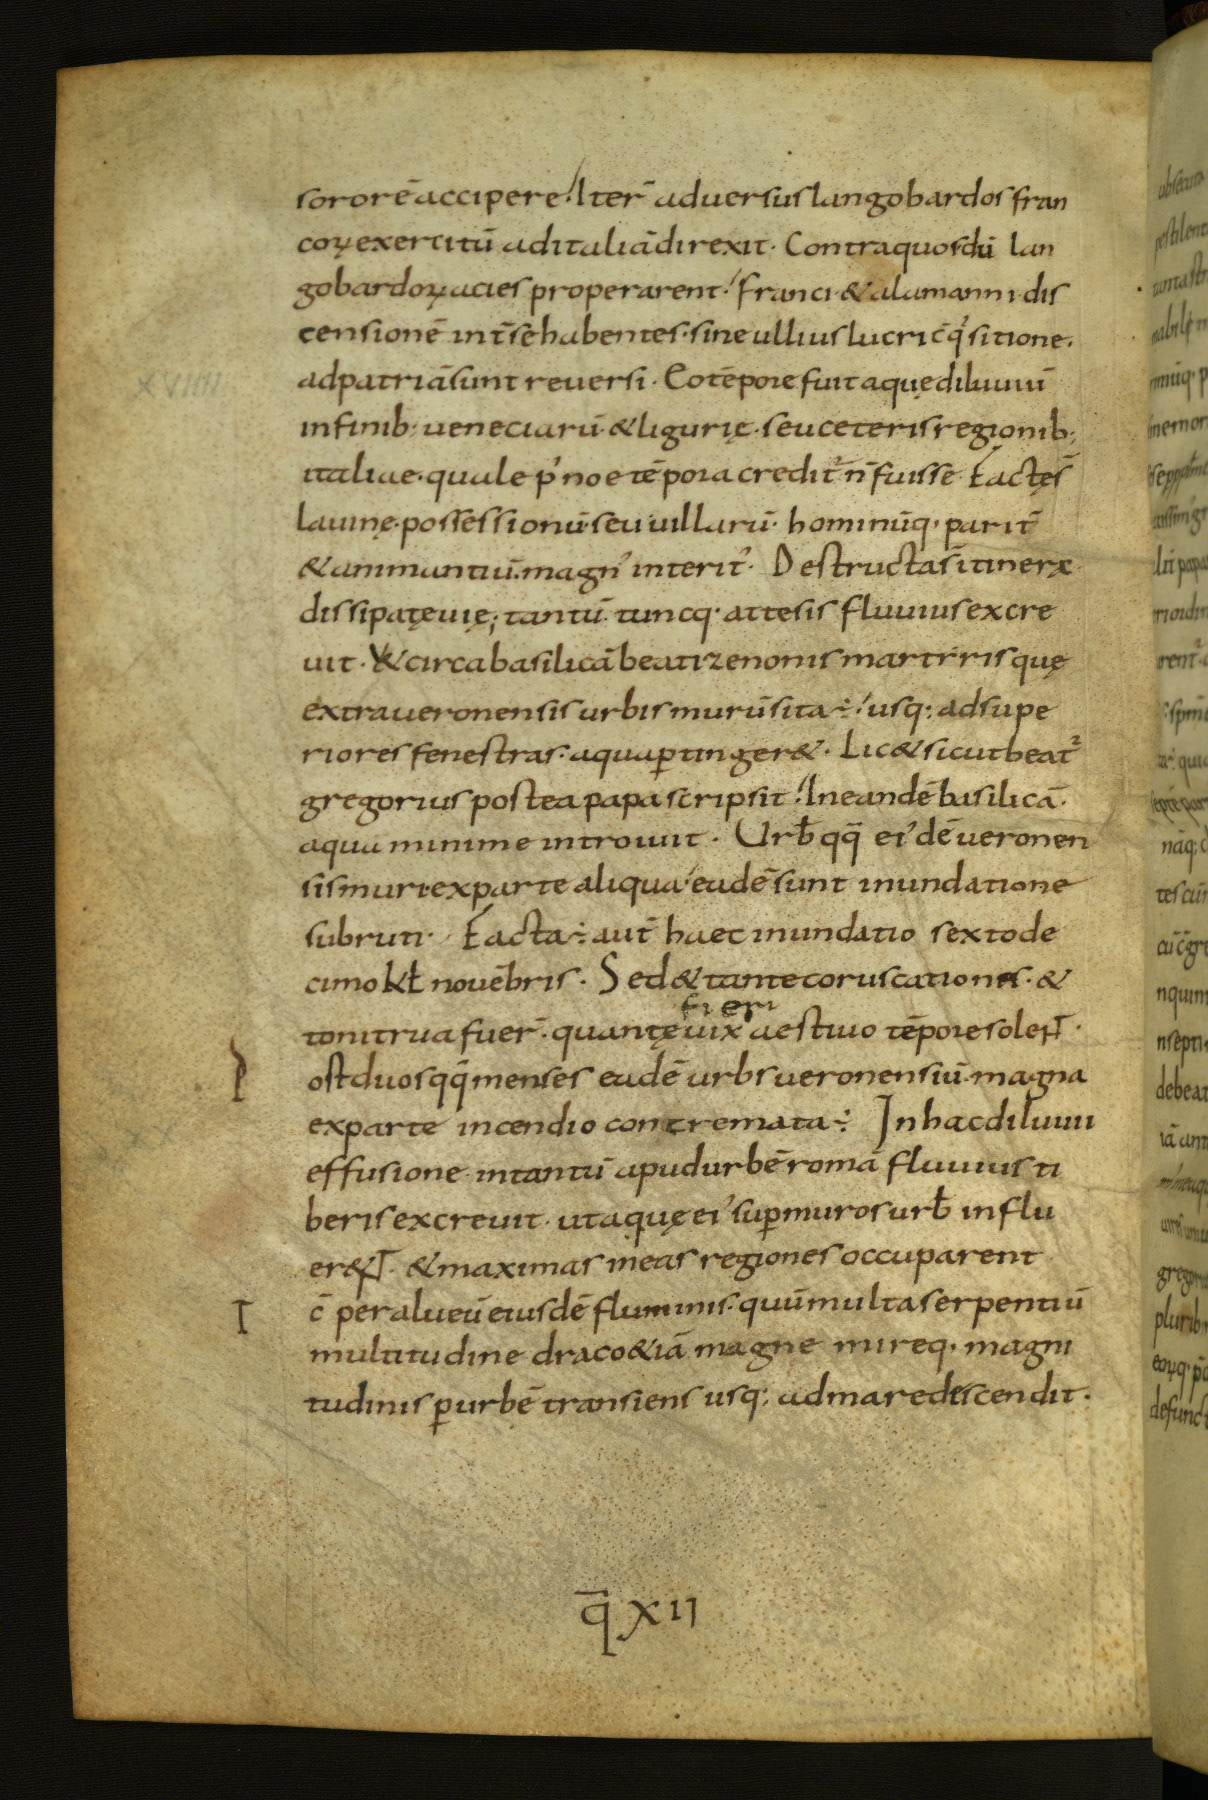 sororē accipere. Iter̄ aduersus langobardos fran
coꝝ exercitū ad italiā direxit. Contra quos dū lan
gobardoꝝ acies properarent. franci & alamanni dis
censionē int̄ se habentes. sine ullius lucri c̄q'sitione.
ad patriā sunt reuersi. Eo tēpore fuit aquę diluuiū
in finib; ueneciarū & ligurię. seu ceteris regionib;
italiae. quale p' noe tēpora credit᷑ n̄ fuisse. Factę s̄
lauinę. possessionū. seu uillarū. hominūq. parit̄
& animantiū. magn' interit'. Destructa s̄ itinera
dissipatę uię; tantū tuncq. attesis fluuius excre
uit. & circa basilicā beati zenonis martiris quę
extra ueronensis urbis murū sita ÷ usq; ad supe
riores fenestras. aqua ꝑtinger&. Lic& sicut beat᷑
gregorius postea papa scripsit. In eandē basilicā.
aqua minime introiuit. Urb̄ qq̄ ei'dē ueronen
sis muri ex parte aliqua eadē sunt inundatione
subruti. Facta ÷ aut̄ haec inundatio sexto de
cimo kł nouēbris. Sed & tante coruscationes. &
fieri
tonitrua fuer̄. quantę uix aestiuo tēpore solent.
P
ost duos qq̄ menses eadē urbs ueronensiū. magna
ex parte incendio concremata ÷ In hac diluuii
effusione in tantū apud urbē romā fluuius ti
beris excreuit. ut aquę ei' sup muros urb̄ influ
er&. & maximas in eas regiones occuparent
T
c̄ per alueū eiusdē fluminis. quū multa serpentiū
multitudine draco &iā magne mireq. magni
tudinis ꝑ urbē transiens usq; ad mare descendit.
q̄ XII